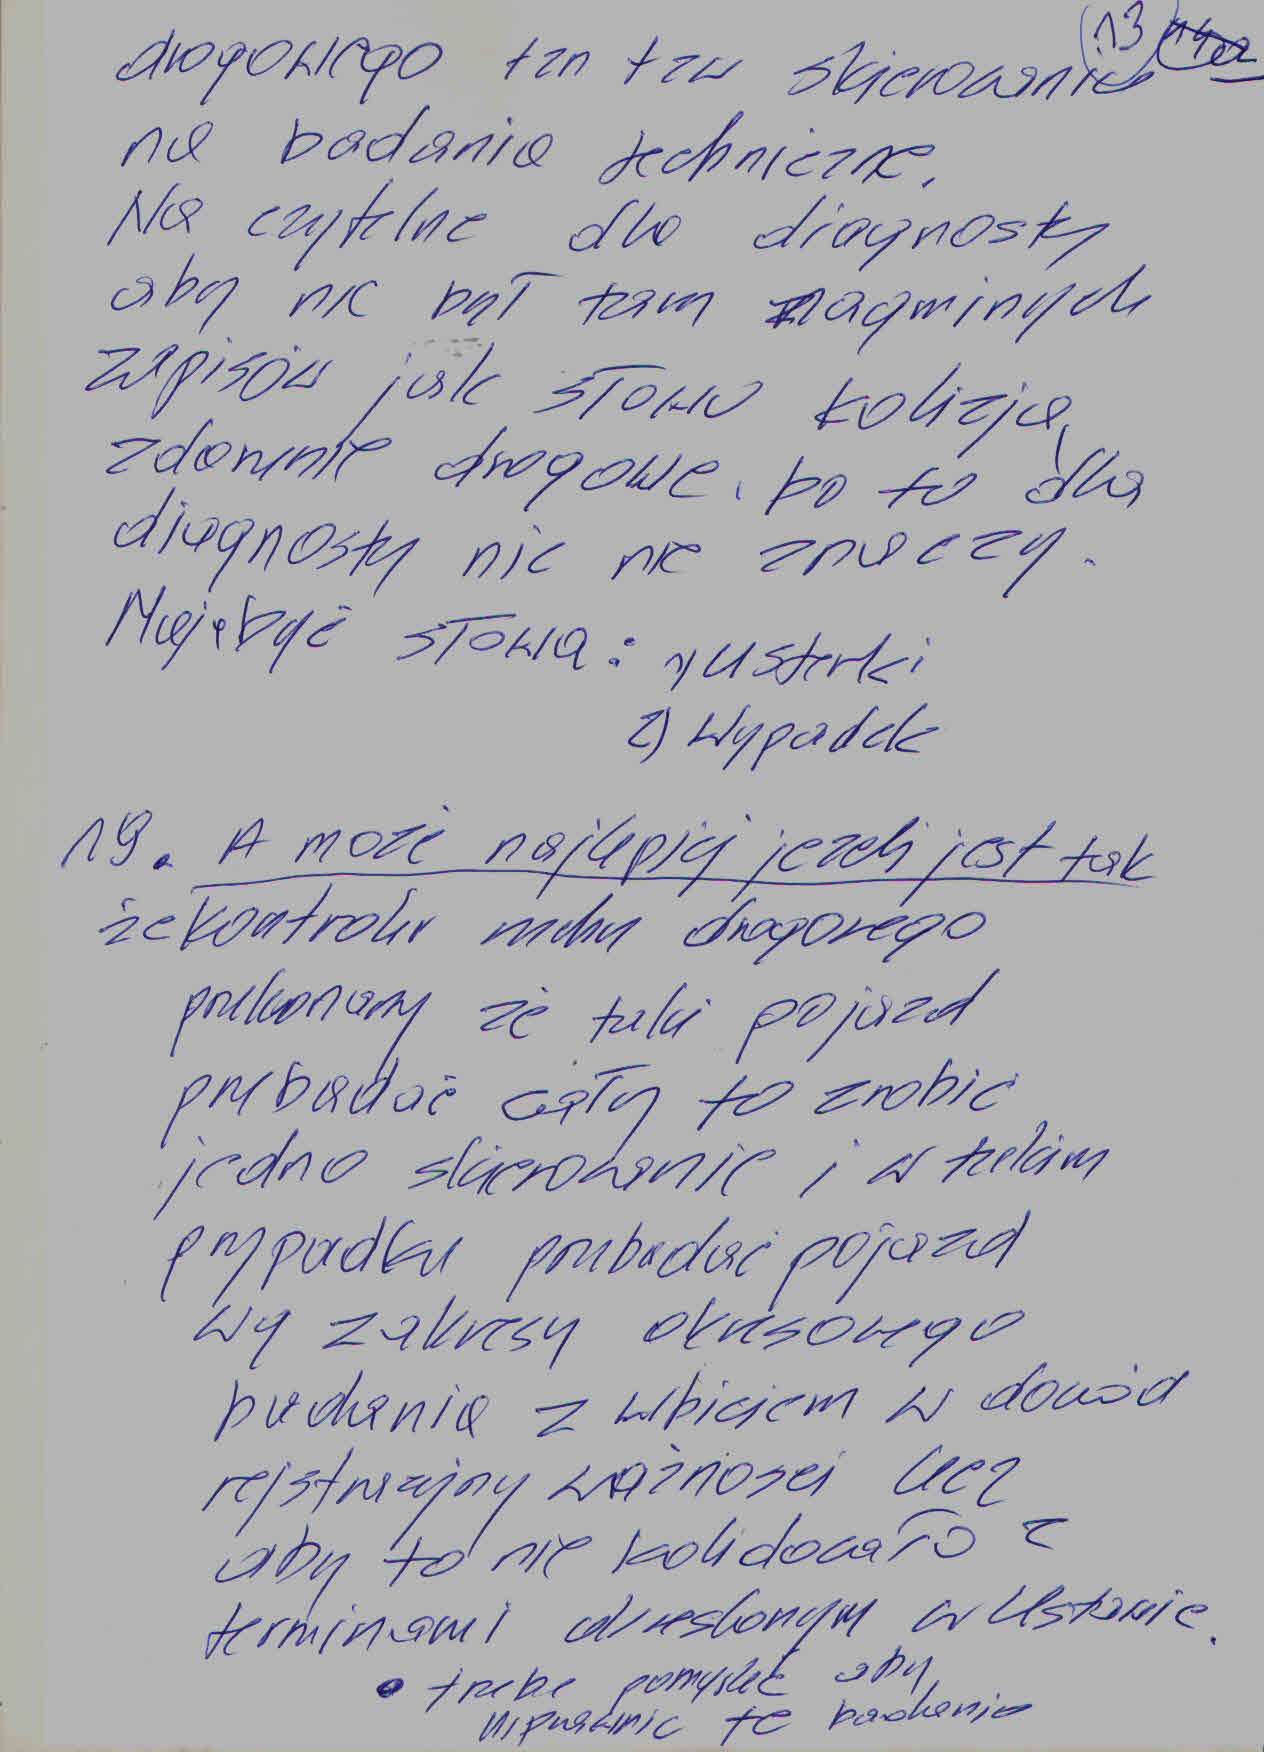 13
drogowego tzn tzw skierowanie
na badania techniczne.
Na czytelne dla diagnosty
aby nie był tam nagminych
zapisów jak słowo kolizja,
zdarzenie drogowe, bo to dla
diagnosty nic nie znaczy.
Mają być słowa: 1) Usterki
2) Wypadek
19. A może najlepiej jeżeli jest tak
że kontroler ruchu drogowego
przekonany że taki pojazd
przebadać cały to zrobić
jedno skierowanie i w takim
przypadku przebadać pojazd
wg zakresu okresowego
badania z wbiciem w dowód
rejstracyjny ważności lecz
aby to nie kolidowało z
terminami określonym w Ustawie.
• trzeba pomyśleć aby
usprawnić te badania